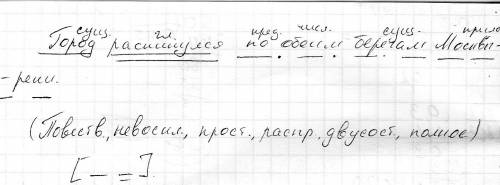 сущ. гл. пред. числ. сущ. прил.
Город раскинулся по обеим берегам Москвы-
- реки.
(Повеств., невоскл., прост., распр. двусост., полное)
[ — = ].